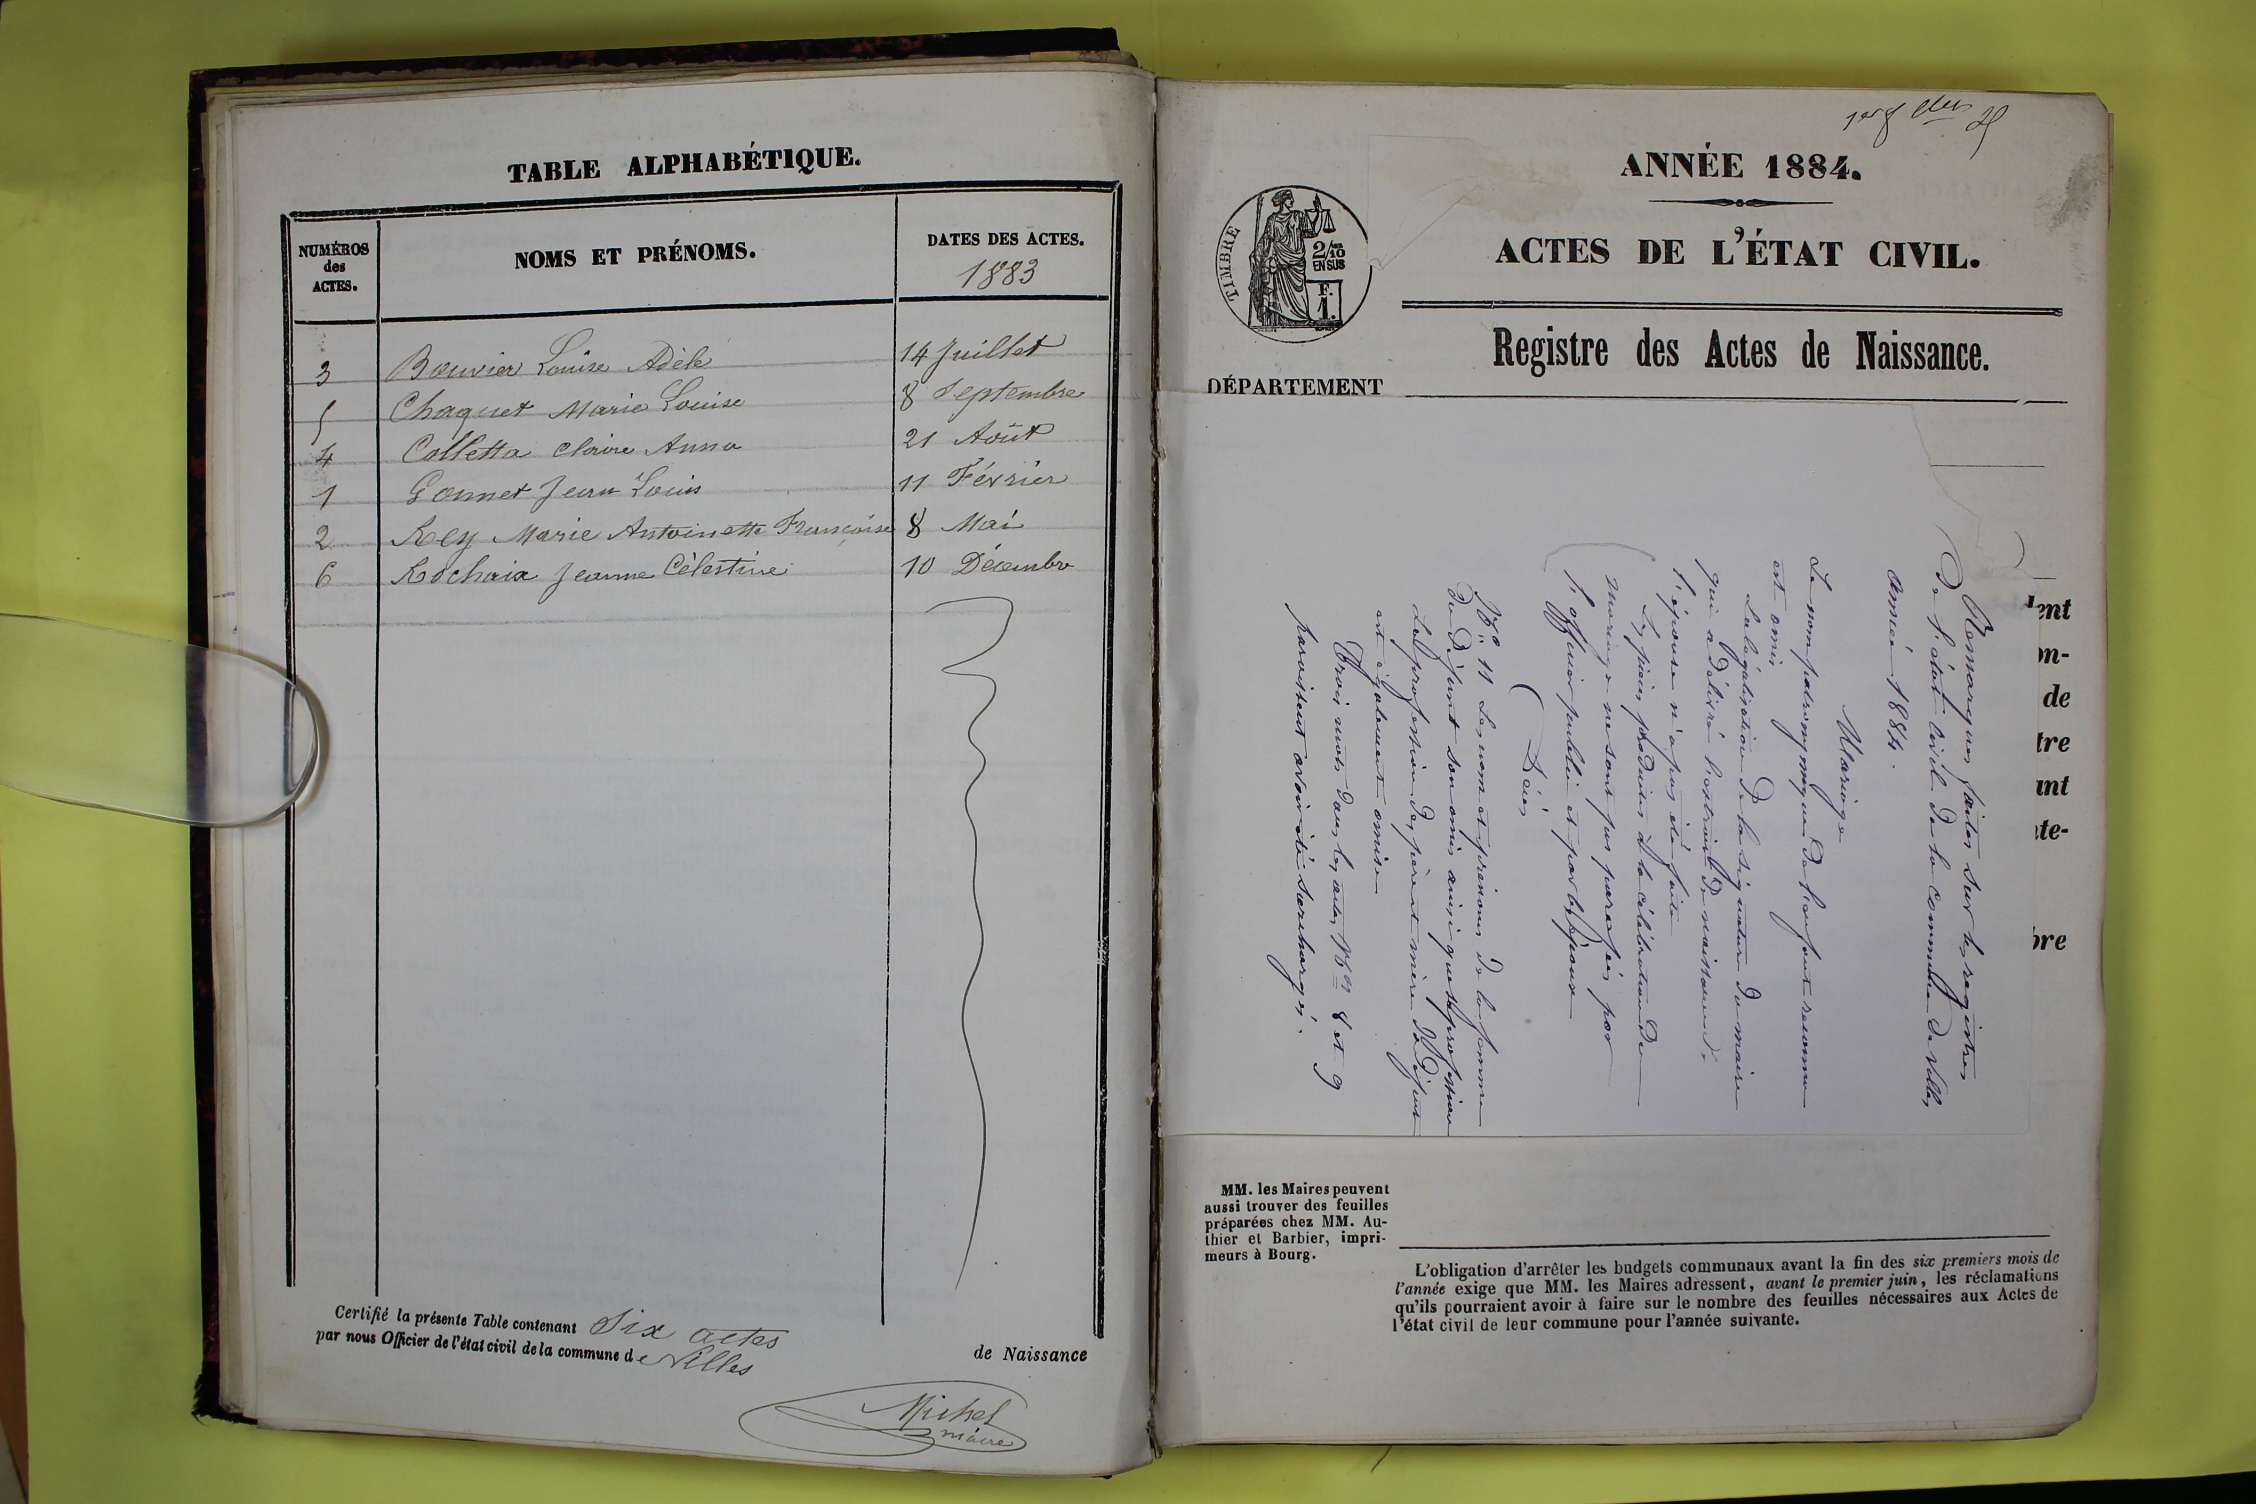 TABLE ALPHABÉTIQUE.
NUMÉROS
des
ACTES.
NOMS ET PRÉNOMS.
DATES DES ACTES.
1883
3 Bouvier Louise Adèle 14 Juillet
5 Chaquet Marie Louise 8 Septembre
4 Colletta Claire Anna 21 Août
1 Gonnet Jean Louis 11 Février
2 Rey Marie Antoinette Françoise 8 Mai
6 Rochaix Jeanne Célestine 10 Décembre
Certifié la présente Table contenant Six actes de Naissance
par nous Officier de l'état civil de la commune de Villes
Michel
maire
ANNÉE 1884.
ACTES DE L'ÉTAT CIVIL.
TIMBRE
2/10
EN SUS
F.
1.
Registre des Actes de Naissance.
DÉPARTEMENT
Remarques faites sur les registres
de l'état civil de la commune de Villes
année 1884.
Mariage
Le nom patronymique de l'enfant reconnu
est omis
La légalisation de la signature du maire
qui a délivré l'extrait de naissance de
l'épouse n'a pas été faite
Les pièces produites à la célébration du
mariage ne sont pas parafées par
l'officier public et par les époux
Décès
No 11 Les noms et prénoms de la femme
du défunt sont omis ainsi que sa profession
La profession des père et mère du défunt
est également omise
Trois mots dans les actes Nos 8 et 9
paraissent avoir été surchargés.
ent
on-
de
tre
ant
te-
bre
MM. les Maires peuvent
aussi trouver des feuilles
préparées chez MM. Au-
thier et Barbier, impri-
meurs à Bourg.
L'obligation d'arrêter les budgets communaux avant la fin des six premiers mois de
l'année exige que MM. les Maires adressent, avant le premier juin, les réclamations
qu'ils pourraient avoir à faire sur le nombre des feuilles nécessaires aux Actes de
l'état civil de leur commune pour l'année suivante.